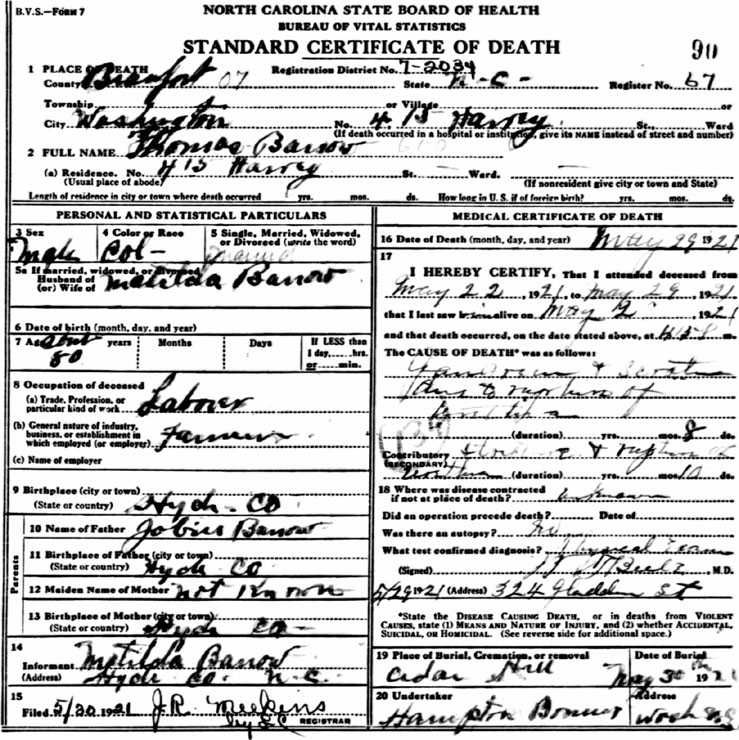 B.V.S.—FORM 7
NORTH CAROLINA STATE BOARD OF HEALTH
BUREAU OF VITAL STATISTICS
STANDARD CERTIFICATE OF DEATH
90
1 PLACE OF DEATH Registration District No. 7-2034
County Beaufort 07 State N-C- Register No. 67
Township or Village or
City Washington No. 415 Harvey St., Ward
(If death occurred in a hospital or institution, give its NAME instead of street and number)
2 FULL NAME Thomas Barrow
(a) Residence. No. 415 Harvey St. Ward.
(Usual place of abode) (If nonresident give city or town and State)
Length of residence in city or town where death occurred yrs. mos. ds. How long in U. S. if of foreign birth? yrs. mos. ds.
PERSONAL AND STATISTICAL PARTICULARS
3 Sex 4 Color or Race 5 Single, Married, Widowed, or Divorced (write the word)
Male Col- Married
5a If married, widowed, or divorced
Husband of
(or) Wife of Matilda Barrow
6 Date of birth (month, day, and year)
7 Age years Months Days If LESS than
about 80 1 day, hrs.
or min.
8 Occupation of deceased
(a) Trade, Profession, or
particular kind of work Laborer
(b) General nature of industry,
business, or establishment in
which employed (or employer)
(c) Name of employer
9 Birthplace (city or town)
(State or country) Hyde- Co
Parents
10 Name of Father Barrow
11 Birthplace of Father (city or town)
(State or country) Hyde Co
12 Maiden Name of Mother Not Known
13 Birthplace of Mother (city or town)
(State or country) Hyde Co-
14
Informant Matilda Barrow
(Address) Hyde Co. N.C.
15
Filed 5/30 1921 J.R. Meekins
REGISTRAR
MEDICAL CERTIFICATE OF DEATH
16 Date of Death (month, day, and year) May 29 1921
17
I HEREBY CERTIFY, That I attended deceased from
May 22, 1921, to May 29, 1921
that I last saw alive on May, 1921
and that death occurred, on the date stated above, at m.
The CAUSE OF DEATH* was as follows:
(duration) yrs. mos. 8 ds.
Contributory
(SECONDARY)
(duration) yrs. mos. 10 ds.
18 Where was disease contracted
if not at place of death? Unknown
Did an operation precede death? Date of
Was there an autopsy? No
What test confirmed diagnosis? Physical Exam
(Signed) M.D.
5/29 1921 (Address) 324 Gladden St
*State the DISEASE CAUSING DEATH, or in deaths from VIOLENT
CAUSES, state (1) MEANS AND NATURE OF INJURY, and (2) whether ACCIDENTAL,
SUICIDAL, OR HOMICIDAL. (See reverse side for additional space.)
19 Place of Burial, Cremation, or removal Date of Burial
Cedar Hill May 30th 1921
20 Undertaker Address
Hampton Bonner